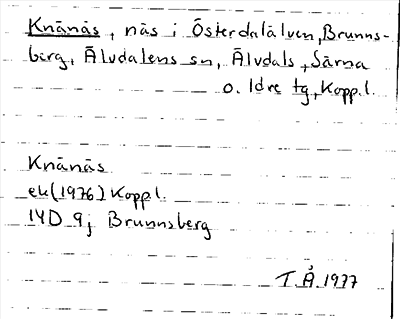 Knänäs, näs i Österdalälven, Brunns-
berg, Älvdalens sn, Älvdals, Särna
o. Idre tg, Kopp.l.
Knänäs
ek (1976) Kopp l.
14D 9j Brunnsberg
T.Å. 1977